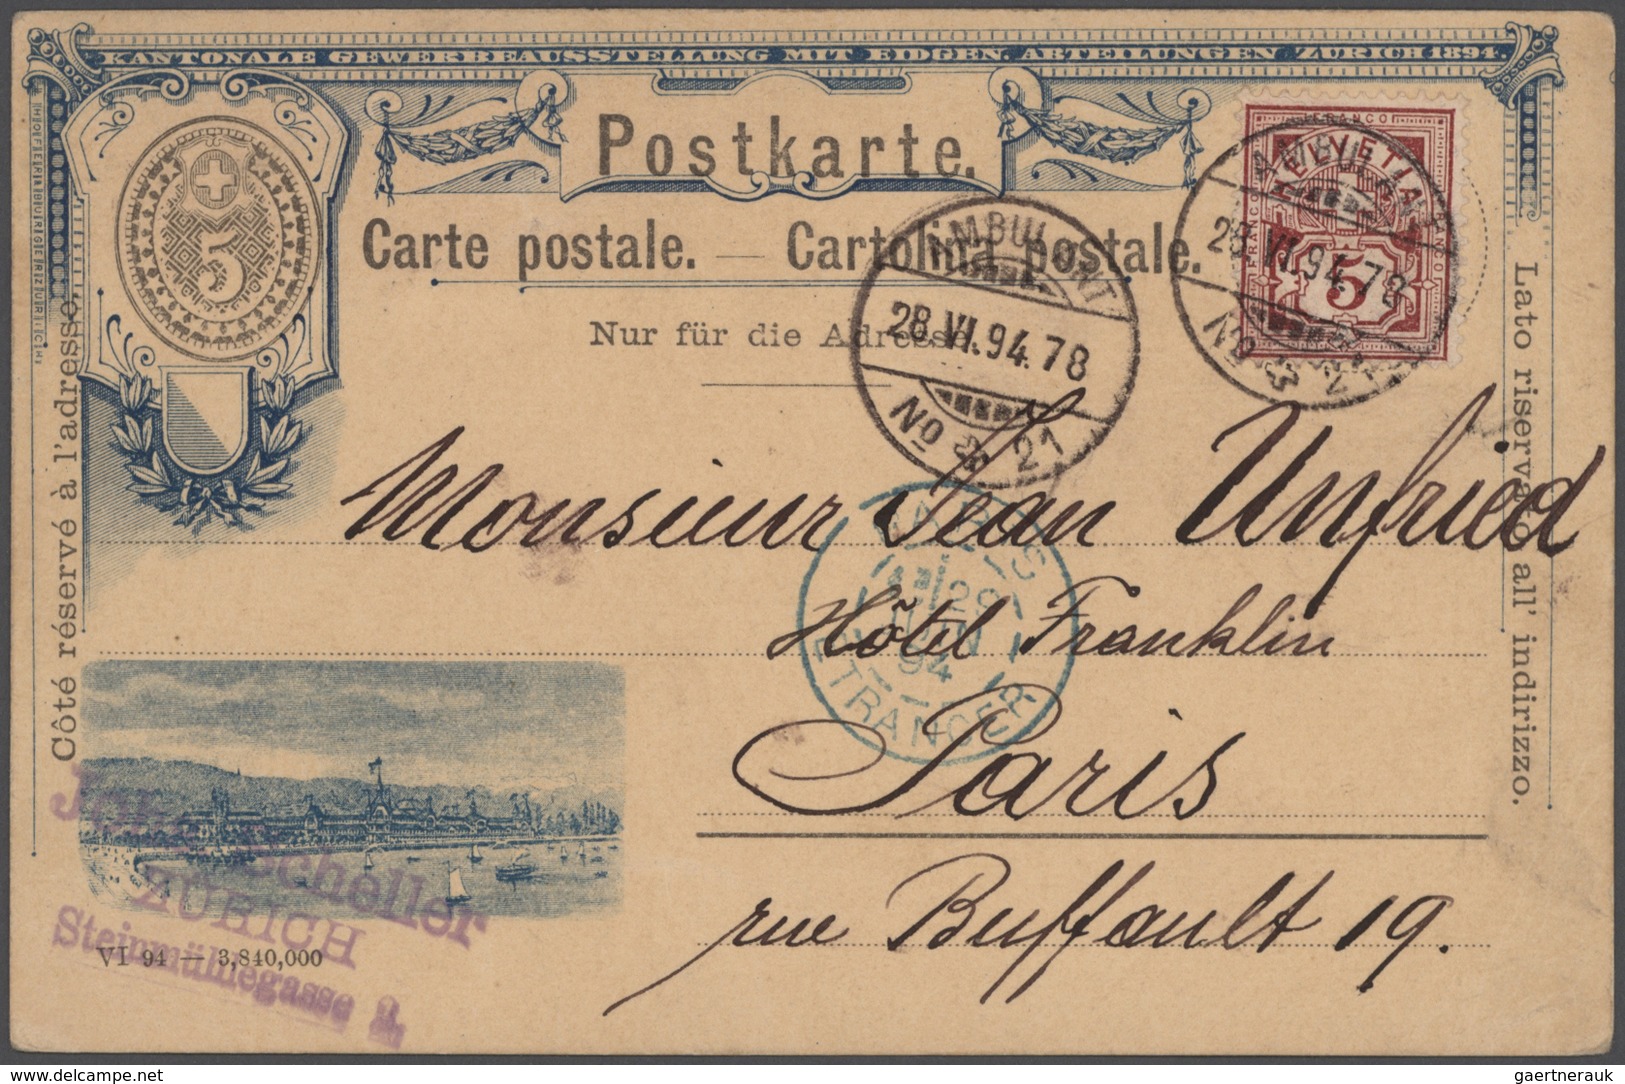 KANTONALE GEWERBEAUSSTELLUNG MIT EIDGEN. ABTEILUNGEN ZÜRICH 1894.
Postkarte.
Carte postale. — Cartolina postale.
Nur für die Adresse
Côté réservé à l'adresse.
Lato riservato all' indirizzo.
5
FRANCO
HELVETIA
FRANCO
FRANCO
5
AMBULANT
28.VI.94.78
No
AMBULANT
28.VI.94.78
No 21
PARIS
29
JUIN
94
ETRANGER
Monsieur Jean Unfried
Hôtel Franklin
Paris
rue Buffault 19.
Scheller
ZÜRICH
Steinmühlegasse
VI 94 — 3,840,000
gaertnerauk@delcampe.net